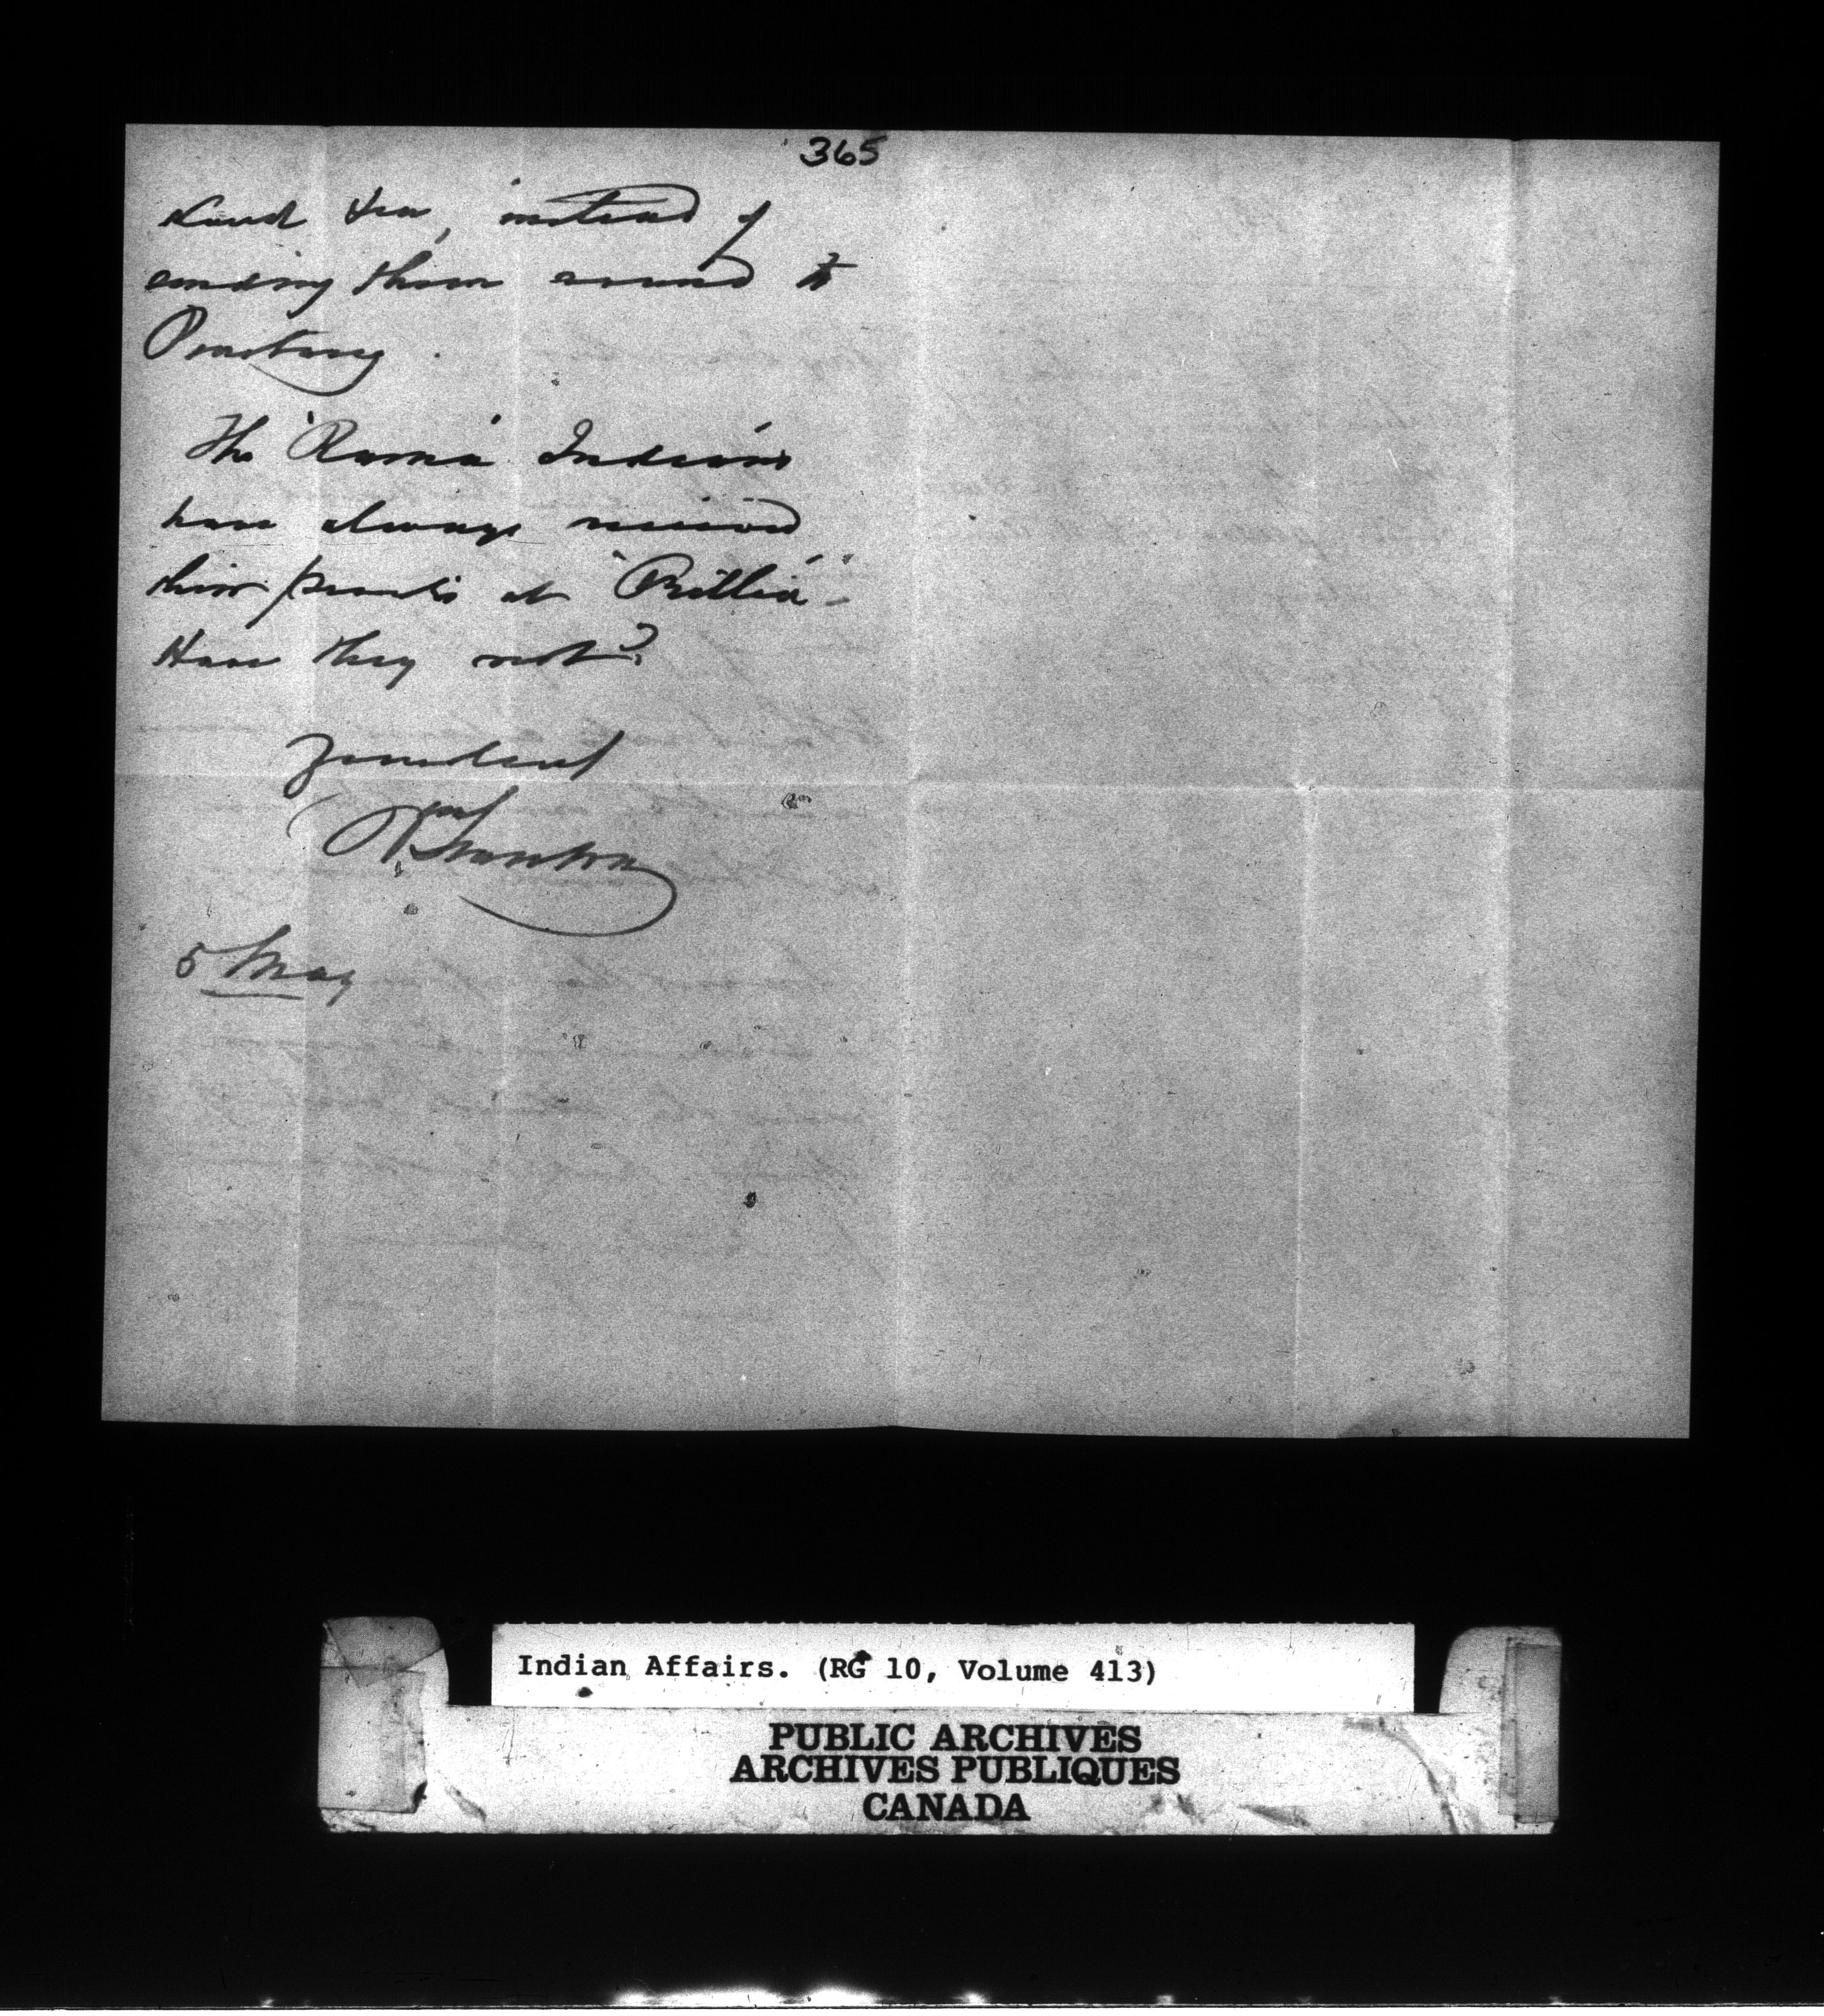 365
instead of
sending them around to
Penetang.
The "Rama" Indians
have always received
their presents at "Orillia"-
Have they not?
Yours truly
5 May
Indian Affairs. (RG 10, Volume 413)
PUBLIC ARCHIVES
ARCHIVES PUBLIQUES
CANADA